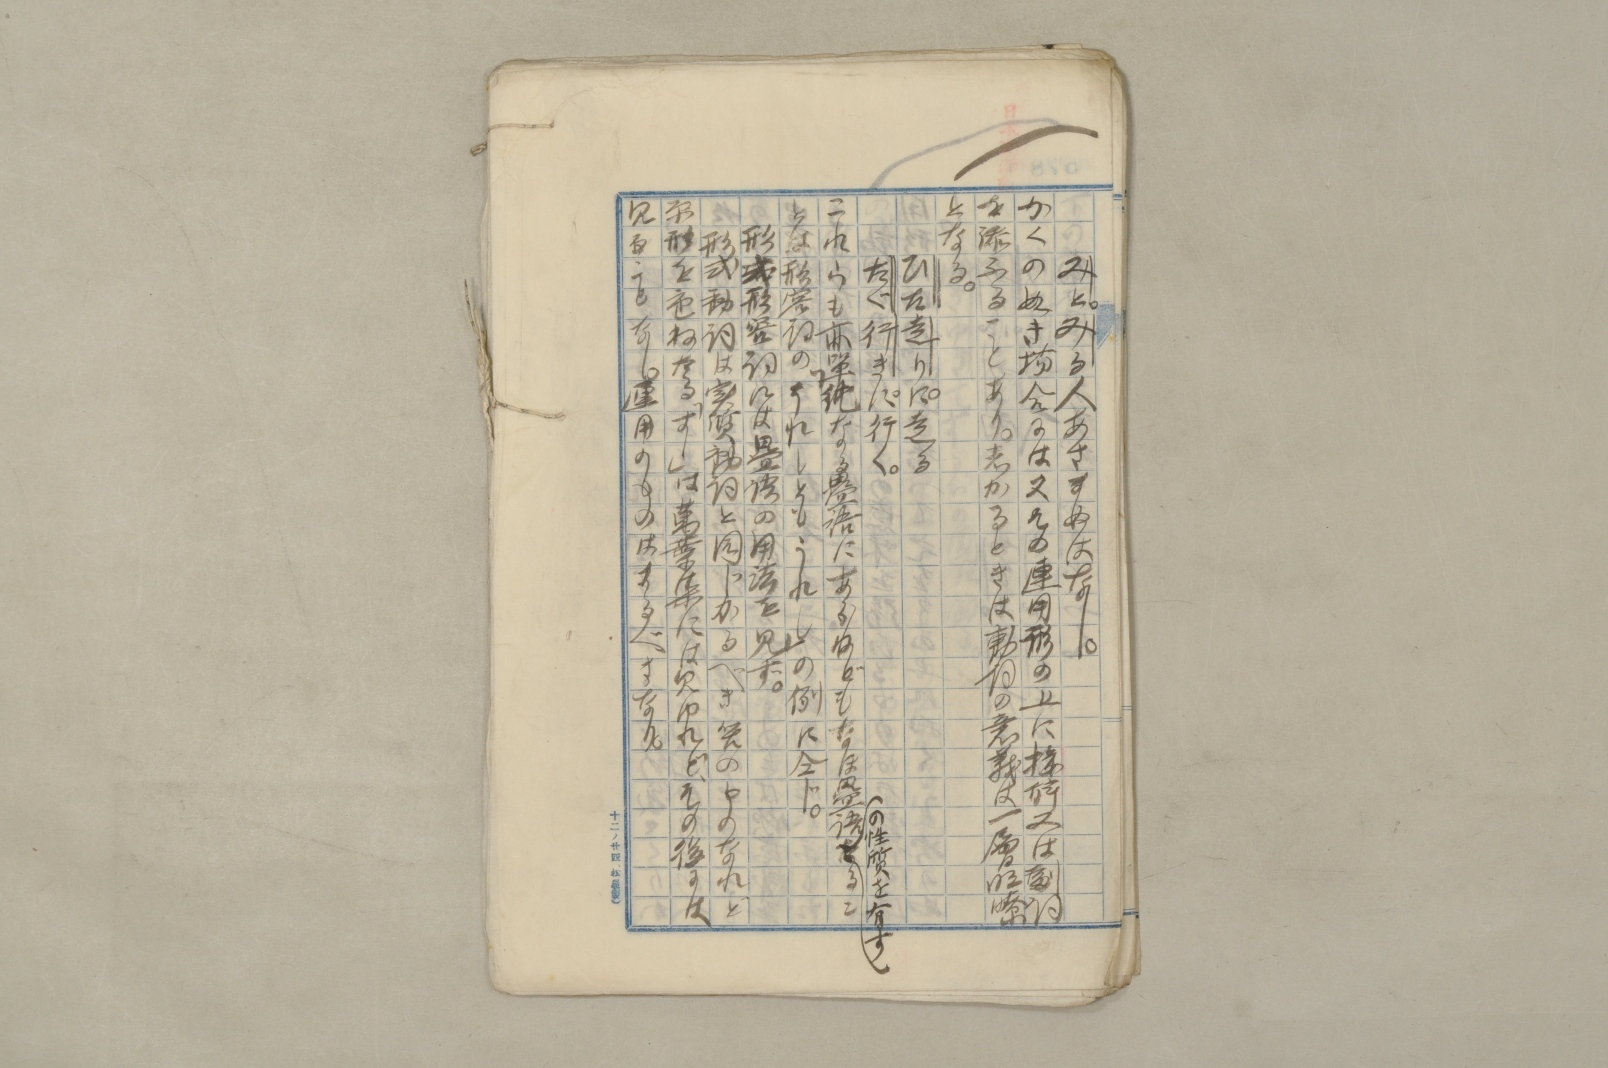 みと。みる人あさまぬはなし。
かくの如き場合には又その連用形の上に接辞又は副詞
を添ふることあり。志かるときは動詞の意義は一層明瞭
となる。
ひた走りに。走る
たゞ行きに。行く。
これらも亦単純なる畳語にあらねどもなほ畳語たるこ
(の性質を有す)
とは形容詞の「うれしともうれし」の例に全じ。
形式形容詞には畳語の用法を見ず。
形式動詞は実質動詞と同じかるべき筈のものなれど
示形を重ねたる「すす」は萬葉集には見ゆれど、その後には
見ることもなし。連用のものはまるべきなり。
十二ノ廿四、松屋製